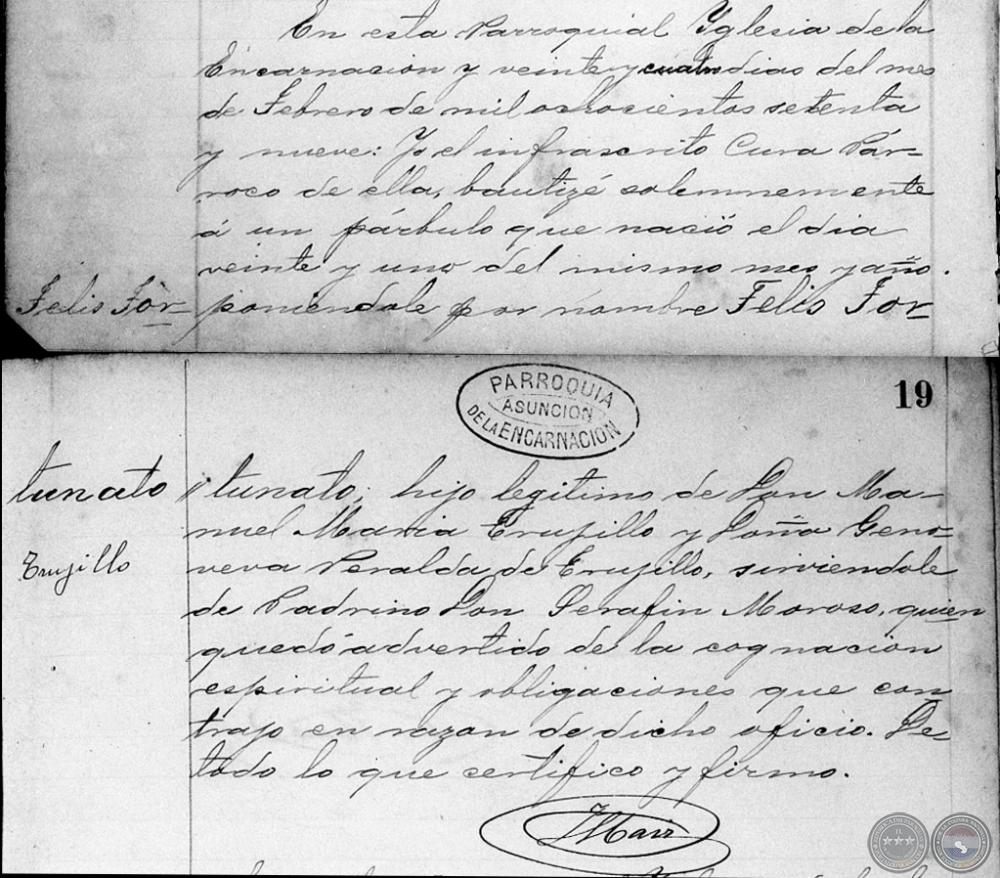 En esta Parroquial Yglesia de la
Encarnacion y veinte y cuatro dias del mes
de Febrero de mil ochocientos setenta
y nueve: Yo el infrascrito Cura Pár-
roco de ella, bautizé solemnemente
á un párbulo que nació el dia
veinte y uno del mismo mes y año.
Felis For- poniendole por nombre Felis For-
PARROQUIA
ASUNCION
DE LA ENCARNACION
19
tunato tunato, hijo legitimo de Don Ma-
nuel Maria Trujillo y Doña Geno-
Trujillo veva Peralda de Trujillo, sirviendole
de Padrino Don Serafin Moroso, quien
quedó advertido de la cognacion
espiritual y obligaciones que con
trajo en razon de dicho oficio. De
todo lo que certifico y firmo.